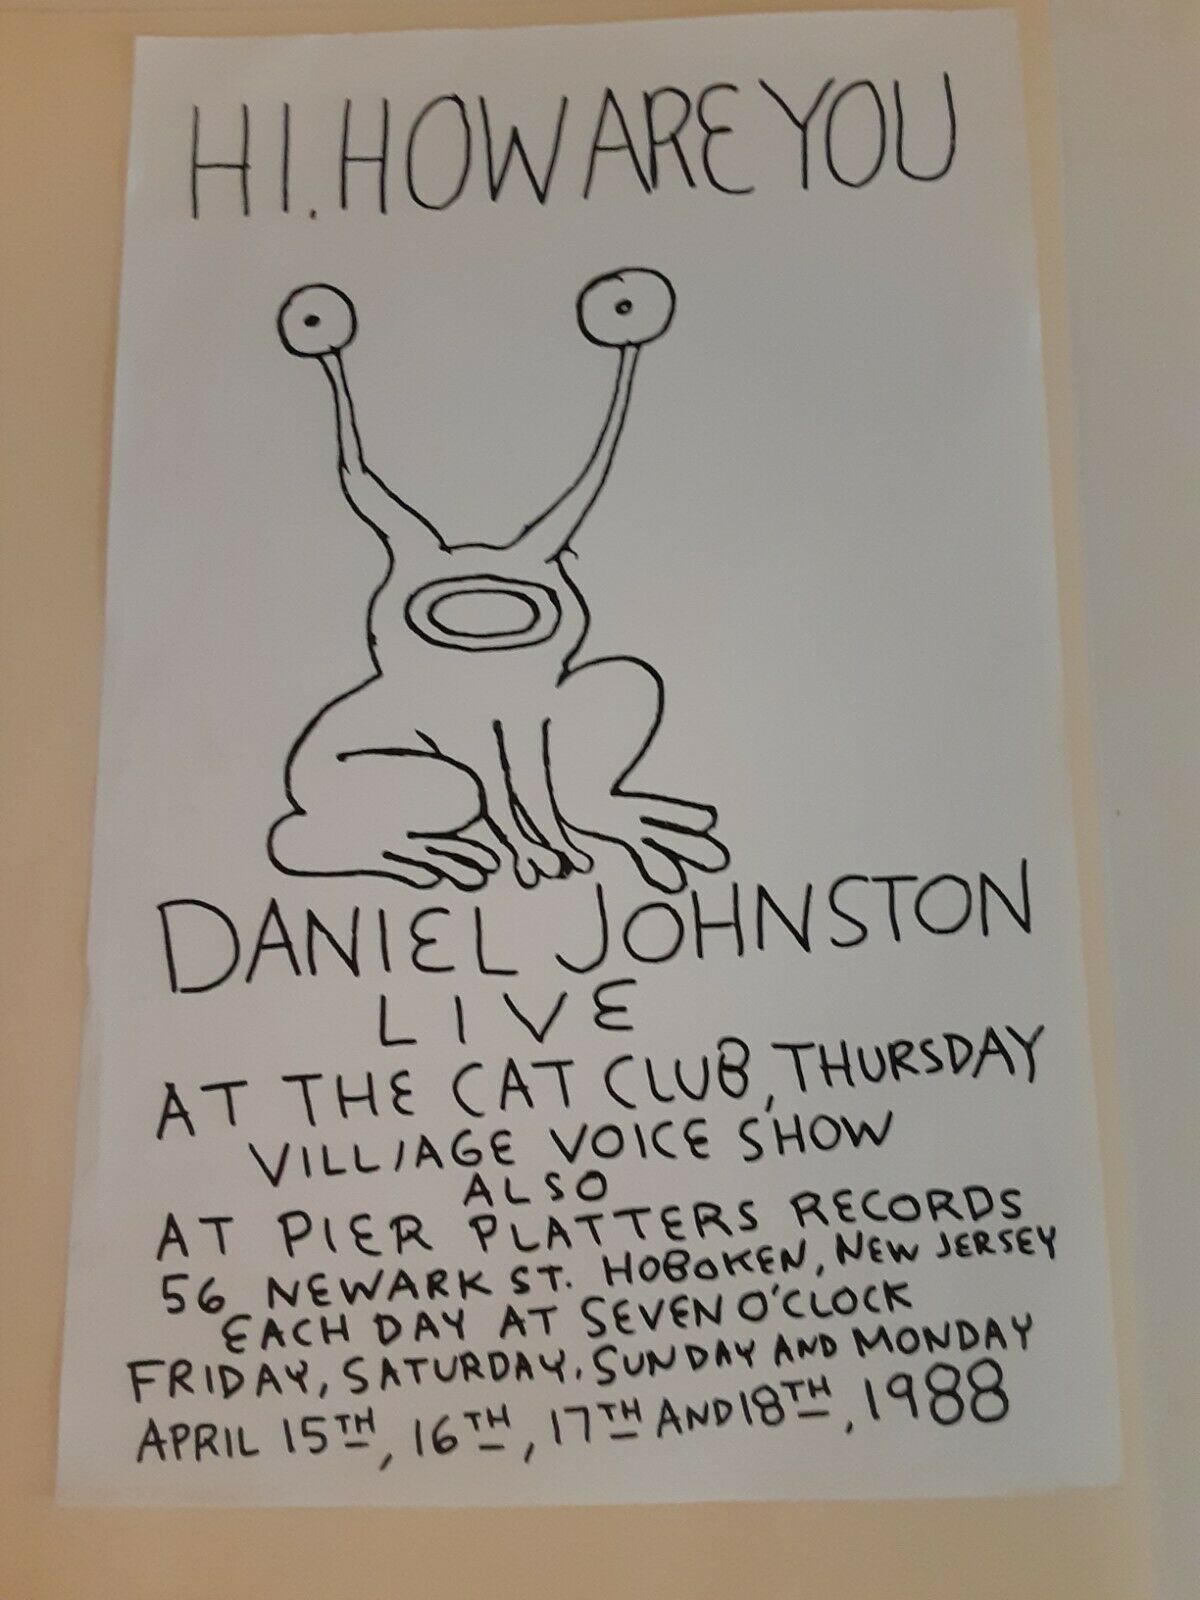 HI. HOW ARE YOU
DANIEL JOHNSTON
LIVE
AT THE CAT CLUB, THURSDAY
VILL/AGE VOICE SHOW
ALSO
AT PIER PLATTERS RECORDS
56 NEWARK ST. HOBOKEN, NEW JERSEY
EACH DAY AT SEVEN O'CLOCK
FRIDAY, SATURDAY, SUNDAY AND MONDAY
APRIL 15TH, 16TH, 17TH AND 18TH, 1988